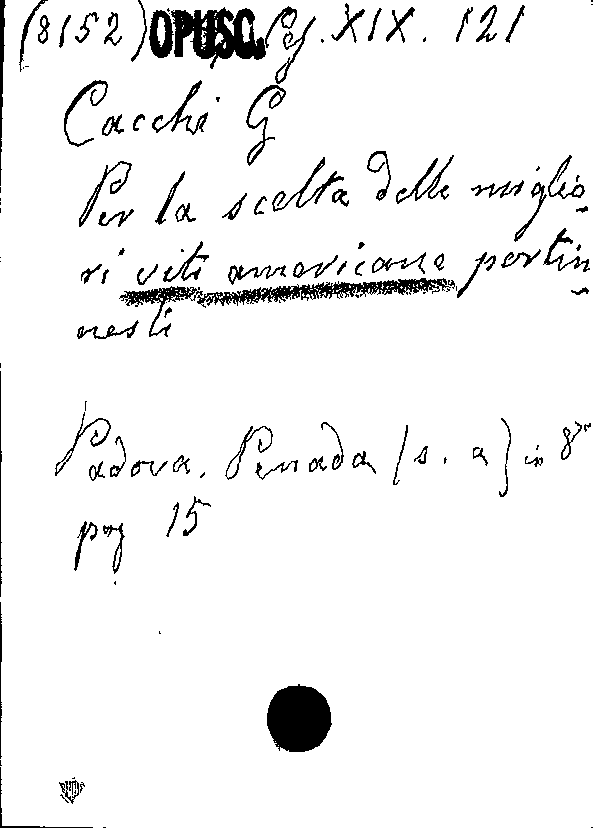 (8152) OPUSC. Cg. XIX. 121
Cacchi G
Per la scelta delle miglio-
ri viti americane portin-
nesti
Padova. Penada (s. a) in 8°
pag 15